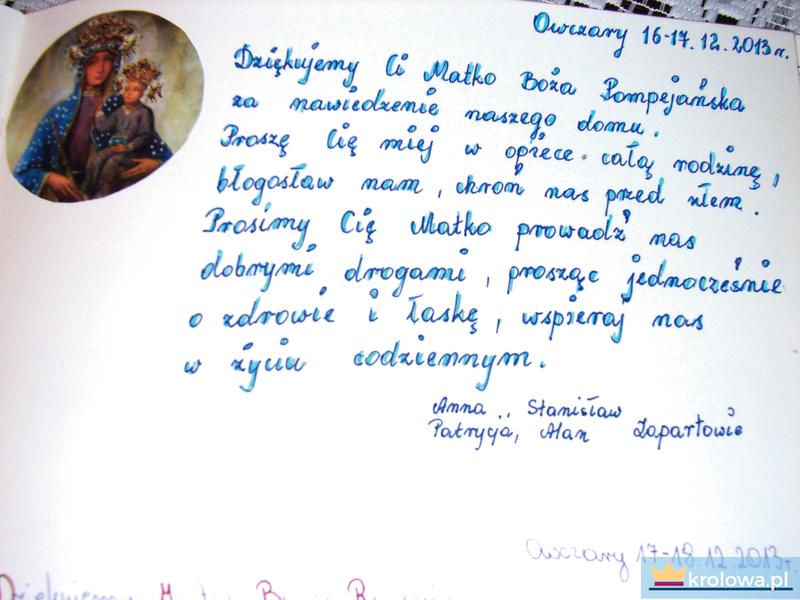 Owczary 16-17.12.2013r.
Dziękujemy Ci Matko Boża Pompejańska
za nawiedzenie naszego domu.
Proszę Cię miej w opiece całą rodzinę,
błogosław nam, chroń nas przed złem.
Prosimy Cię Matko prowadź nas
dobrymi drogami, prosząc jednocześnie
o zdrowie i łaskę, wspieraj nas
w życiu codziennym.
Anna, Stanisław
Patrycja, Alan Zapartowie
Owczary 17-18.12.2013r.
Dziękujemy
krolowa.pl